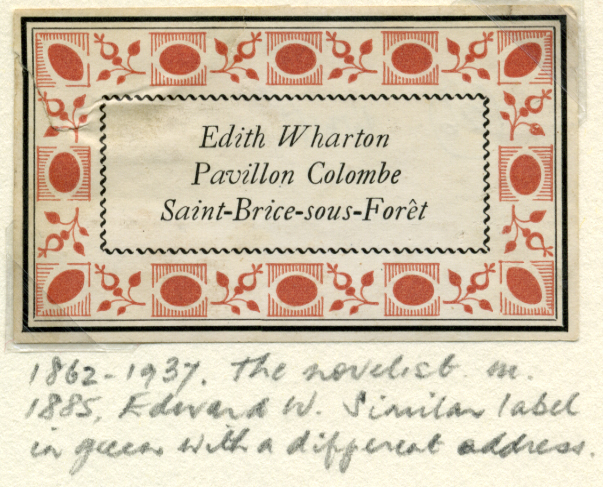 Edith Wharton
Pavillon Colombe
Saint-Brice-sous-Forêt
1862-1937. The novelist. m.
1885, Edward W. Similar label
in green with a different address.